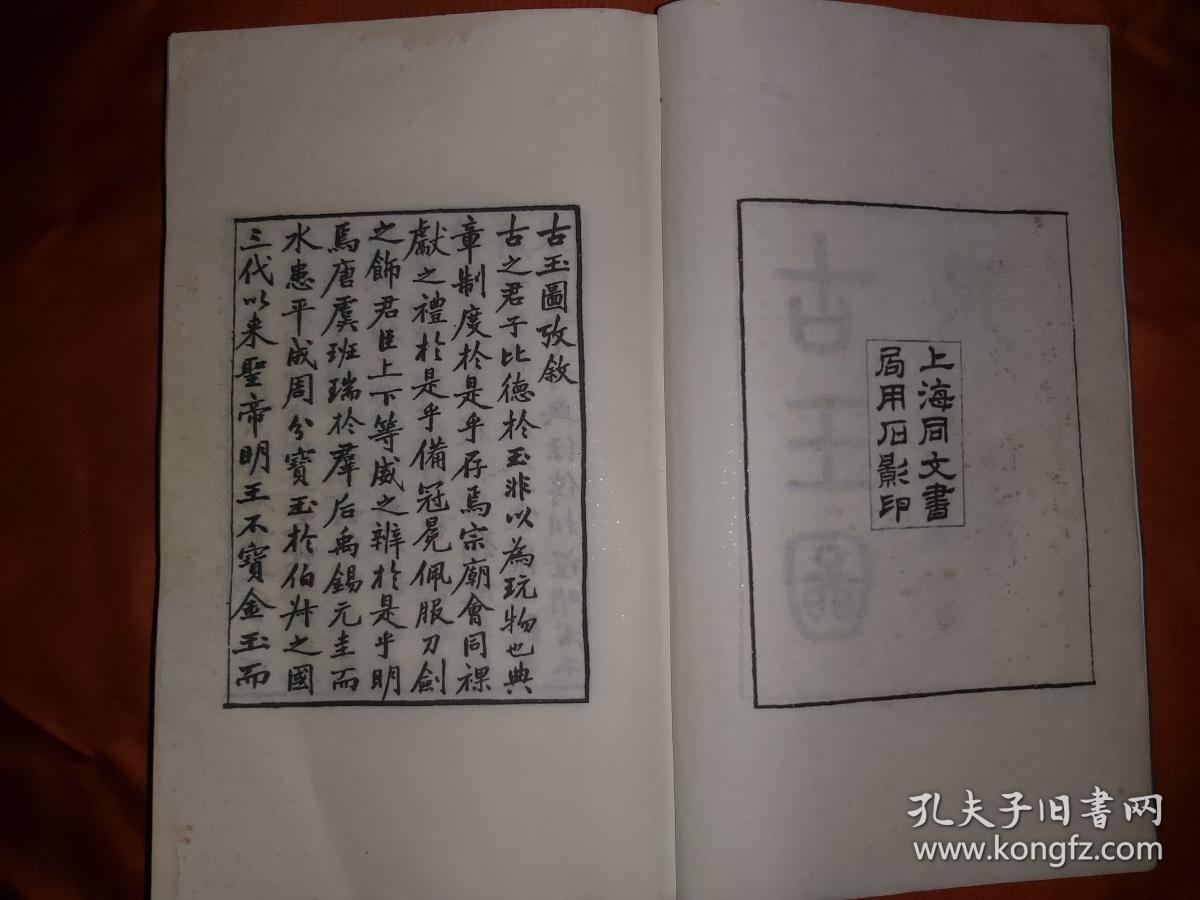 上海同文書
局用石影印
古玉圖攷敘
古之君子比德於玉非以為玩物也典
章制度於是乎存焉宗廟會同祼
獻之禮於是乎備冠冕佩服刀劍
之飾君臣上下等威之辨於是乎明
焉唐虞班瑞於羣后禹錫元圭而
水患平成周分寶玉於伯叔之國
三代以来聖帝明王不寶金玉而
古玉圖
孔夫子旧书网
www.kongfz.com